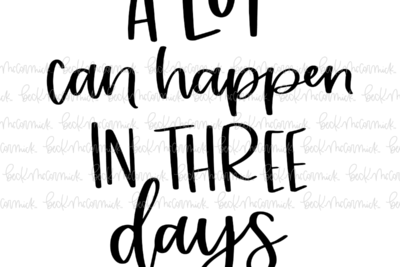 A LOT
can happen
IN THREE
days